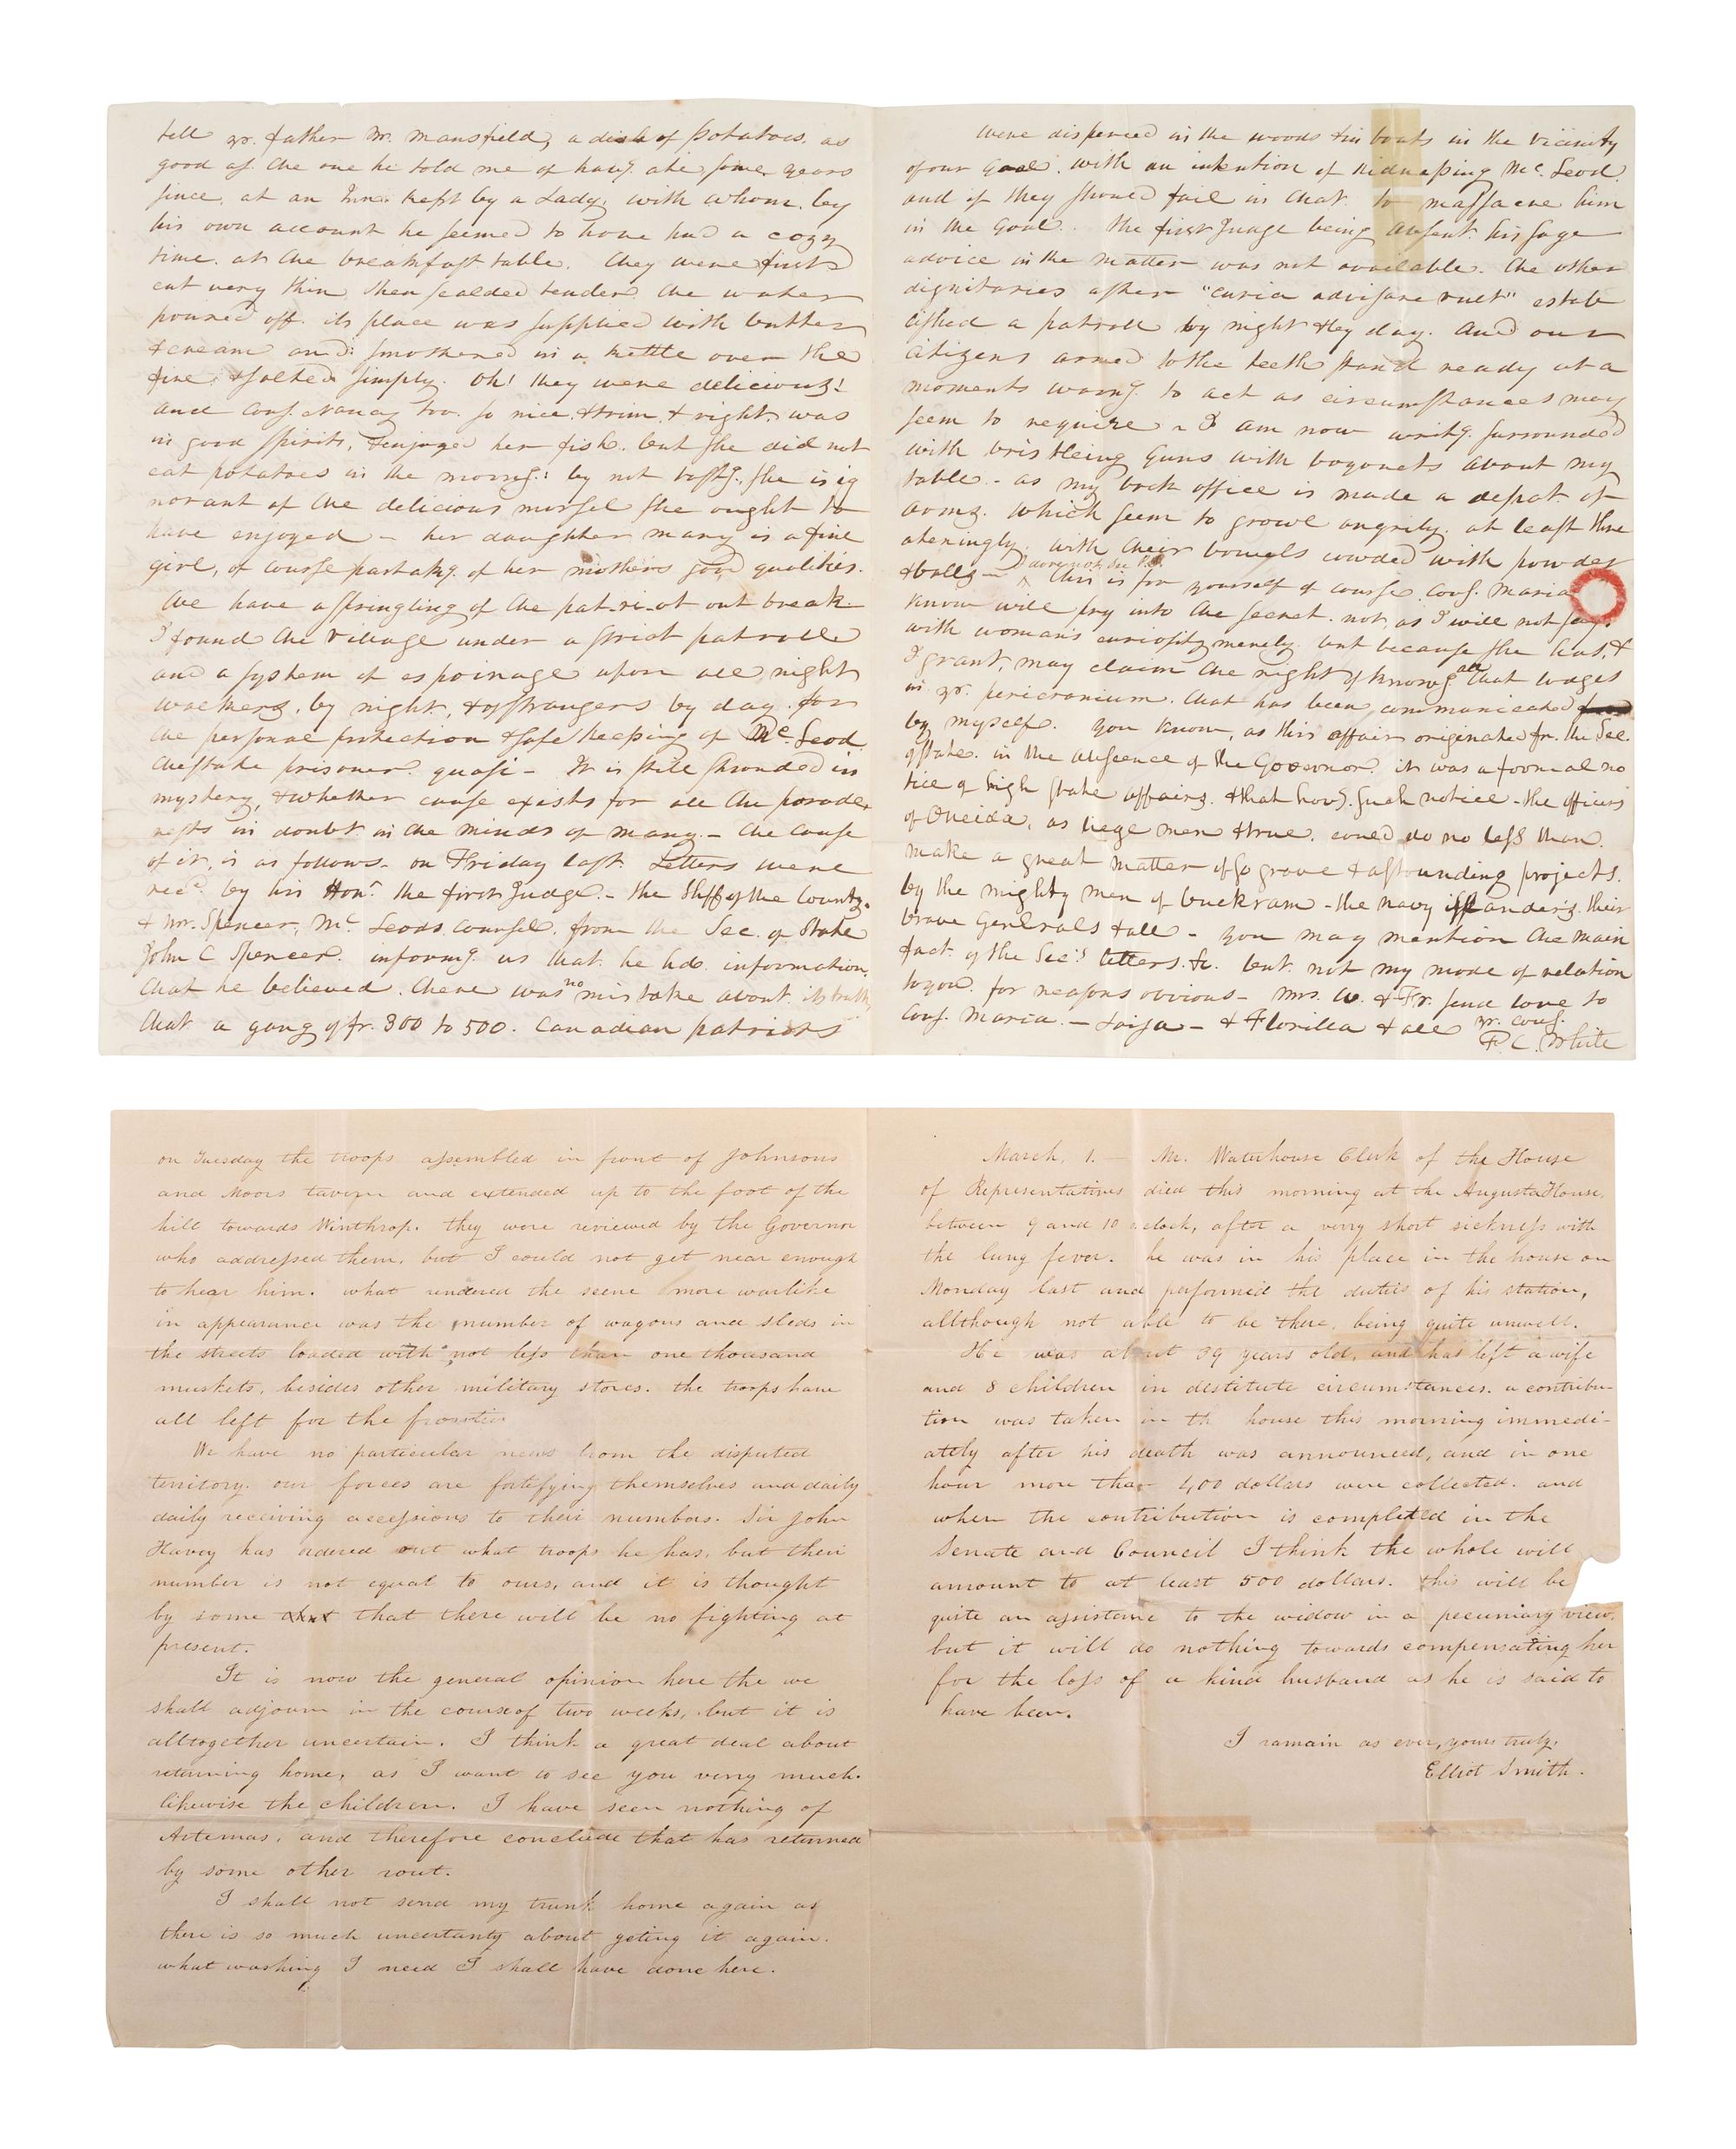 tell yr. father Mr. Mansfield, a dish of potatoes, as
good as the one he told me of havg. ate some years
since, at an Inn. kept by a Lady, with whom, by
his own account he seemed to have had a cozy
time, at the breakfast table. They were first
cut very thin, then scalded tender, the water
poured off. its place was supplied with butter
& cream and smothered in a kettle over the
fire, & salted simply. Oh! they were delicious!
and Cous. Nancy too. so nice, & trim, & right, was
in good spirits, & enjoyed her fish, but she did not
eat potatoes in the morng.: by not tastg. she is ig
norant of the delicious morsel she ought to
have enjoyed – her daughter Mary is a fine
girl, of course partakg. of her mother's good qualities.
We have a springling of the pat-ri-ot out break
I found the village under a strict patrolle
and a system of espoinage upon all night
walkers, by night, & of strangers by day. for
the personal protection & safe keeping of Mc. Leod
the state prisoner. quasi – It is still shrouded in
mystery, & whether cause exists for all the parade,
rests in doubt in the minds of many – the cause
of it, is as follows – on Friday last. Letters were
recd. by his Honr. the first Judge. – the Shff of the County.
& Mr. Spencer, Mc Leods counsel. from the Sec. of State
John C Spencer. informg. us that he had information,
that he believed. there was no mistake about its truth
that a gang of fr. 300 to 500. Canadian patriots
were dispersed in the woods & in boats in the vicinity
of our Goal. with an intention of kidnapping Mc. Leod.
and if they should fail in that to massacre him
in the Goal. The first Judge being Absent his sage
advice in the matter was not available. the other
dignitaries after "curia advisare vult" estab
lished a patroll by night & by day. and our
citizens armed to the teeth stand ready at a
moments warng. to act as circumstances may
seem to require – I am now writg. surrounded
with bristleing guns with bayonets about my
table – as my back office is made a depot of
arms. Which seem to growl angrily, at least thre
ateningly, with their bowels crowded with powder
& balls – This is for yourself of course. Cous. Maria
know will pry into the secret. not, as I will not say,
with woman's curiosity merely, but because she has, &
I grant, may claim the right of knowg. all that lodges
in yr. pericranium. that has been communicated
by myself. You know, as this affair originated fr. the Sec.
of State. in the abscence of the Governor. it was a formal no
tice of high state affairs. & that havg. such notice – the officers
of Oneida, as liege men & true, could do no less than
make a great matter of so grave & astounding projects.
by the mighty men of buckram – the navy islander's. their
brave Generals & all – You may mention the main
fact of the Sec's letters. &c. but not my mode of relation
to you. for reasons obvious – Mrs. W. & Fr. send love to
Cous. Maria. – – & Florilla & all yr. cous.
F. C. White
on Tuesday the troops assembled in front of Johnsons
and Moors tavern and extended up to the foot of the
hill towards Winthrop. they were reviewed by the Governor
who addressed them, but I could not get near enough
to hear him. what rendered the scene more warlike
in appearance was the number of wagons and sleds in
the streets loaded with not less than one thousand
muskets, besides other military stores. the troops have
all left for the frontier
We have no particular news from the disputed
territory. our forces are fortifying themselves and daily
daily receiving accessions to their numbers. Sir John
Harvey has ordered out what troops he has, but their
number is not equal to ours, and it is thought
by some that there will be no fighting at
present.
It is now the general opinion here the we
shall adjourn in the course of two weeks, but it is
alltogether uncertain. I think a great deal about
returning home, as I want to see you very much.
likewise the children. I have seen nothing of
Artemas, and therefore conclude that has returned
by some other rout.
I shall not send my trunk home again as
there is so much uncertanty about geting it again.
what washing I need I shall have done here.
March, 1. – Mr. Waterhouse Clerk of the House
of Representatives died this morning at the Augusta House,
between 9 and 10 oclock, after a very short sickness with
the lung fever. he was in his place in the house on
Monday last and performed the duties of his station,
allthough not able to be there, being quite unwell.
He was about 39 years old, and has left a wife
and 8 children in destitute circumstances. a contribu-
tion was taken in th house this morning immedi-
ately after his death was announced, and in one
hour more than 400 dollars were collected. and
when the contribution is completed in the
Senate and Council I think the whole will
amount to at least 500 dollars. this will be
quite an assistance to the widow in a pecuniary view.
but it will do nothing towards compensating her
for the loss of a kind husband as he is said to
have been.
I ramain as ever, yours truly,
Elliot Smith.